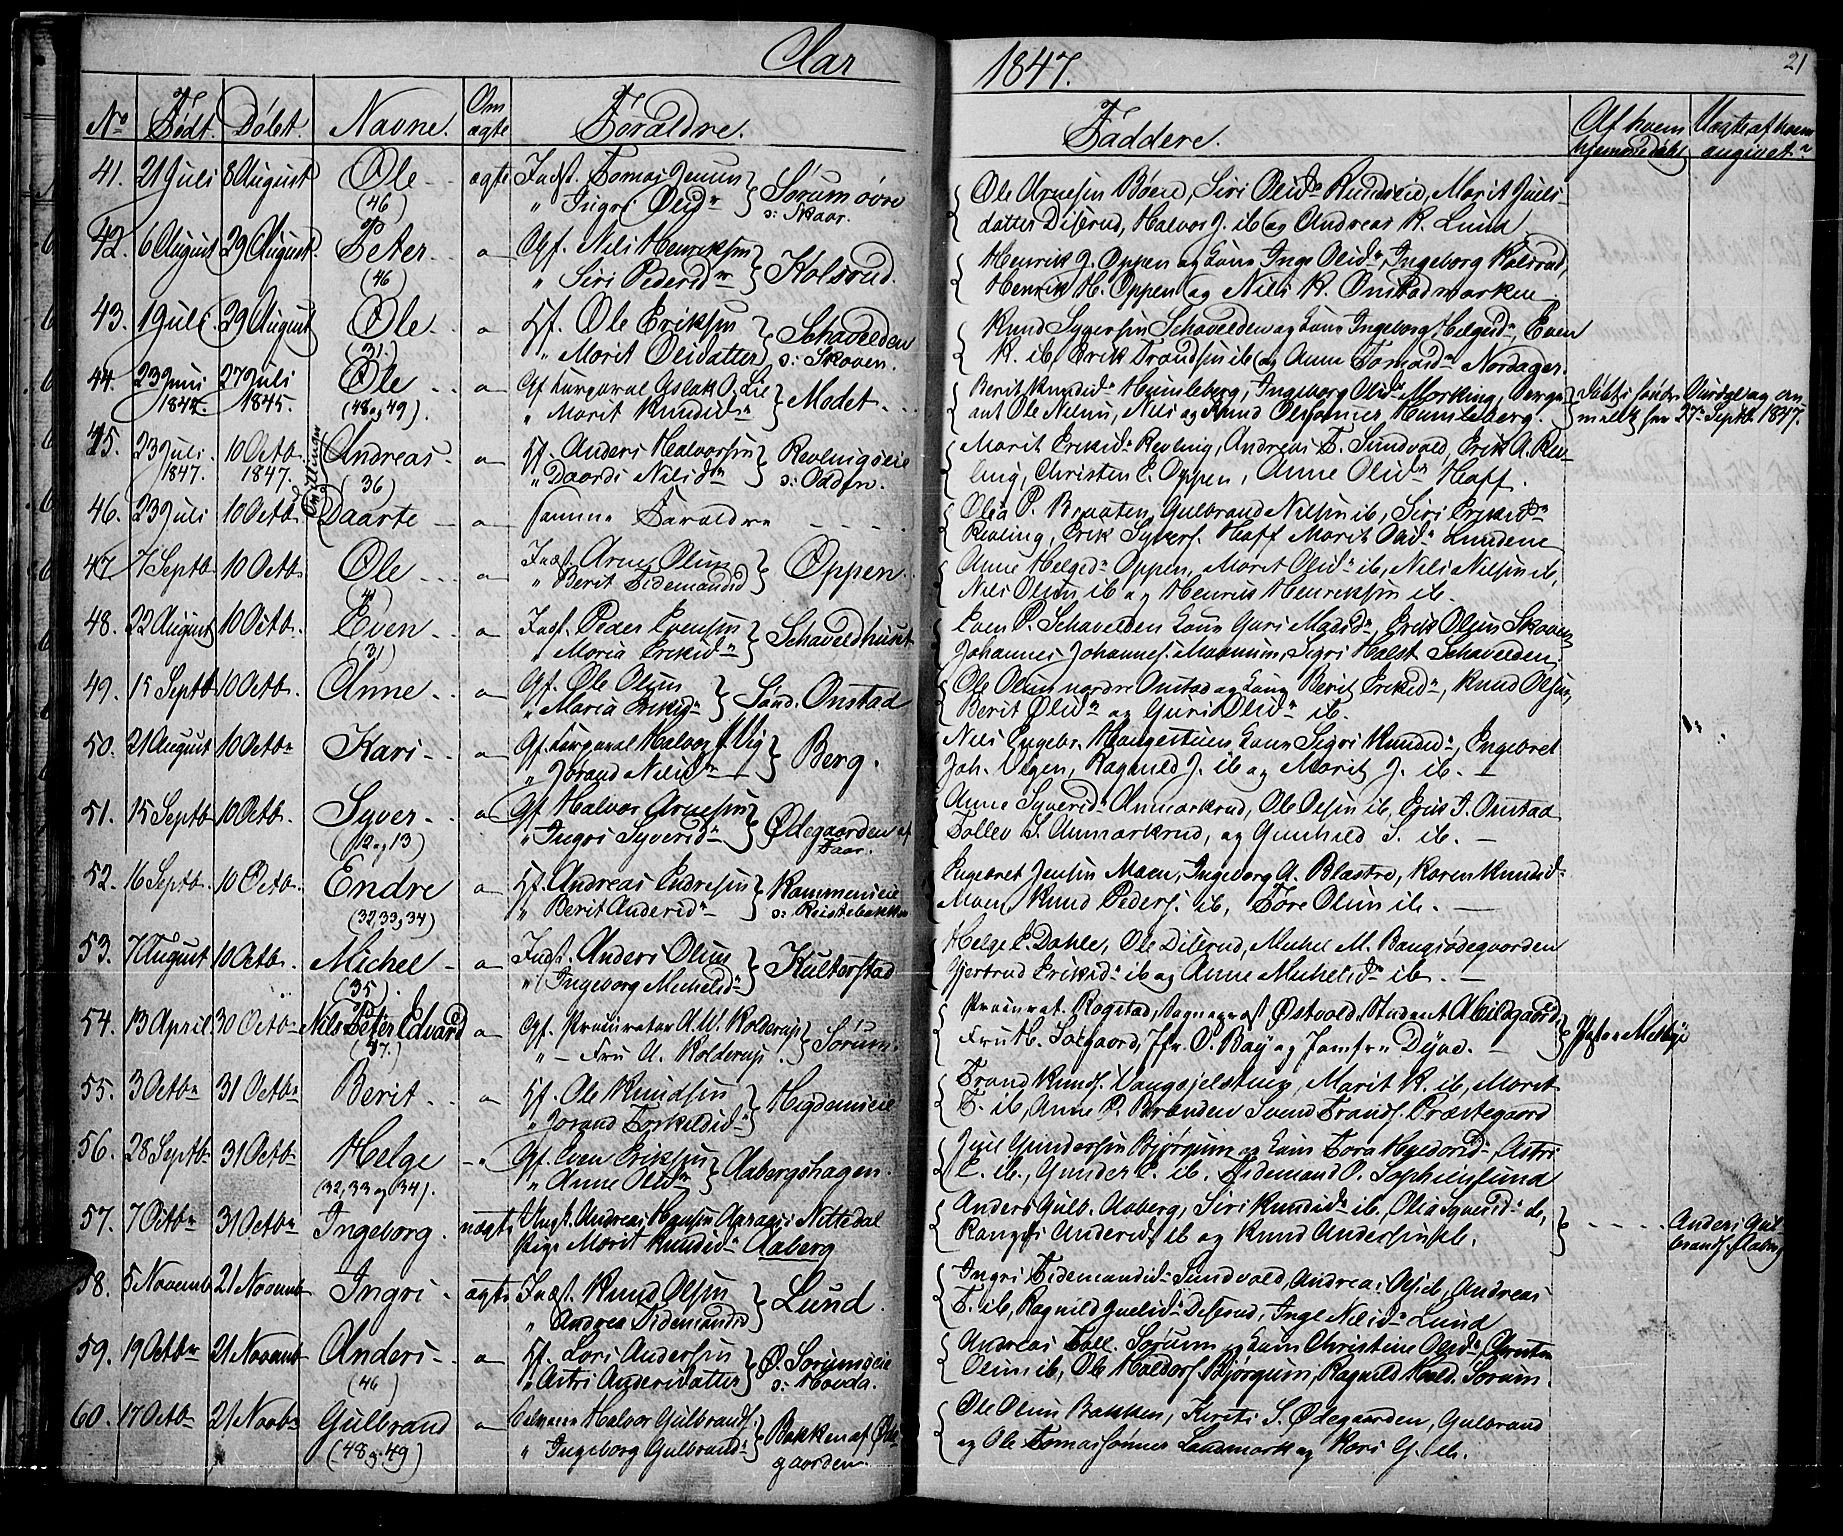 Aar 1847.
21
No Født. Døbt. Navne. Om ægte Forældre. Faddere. Af hvem hjemmedøbt Uægte af hvem angivet
41. 21 Juli 8 August Ole (46) ægte Indst. Tomas Ingri Olsdr Sørum øvre Skaar.
Ole Arnesøn Bøen, Siri Olsdr Rundseid, Marit Juels
datter Diserud, Halvor J. ib og Andreas K. Lund
42. 6 August 29 August. Peter (46) Gf. Nils Henriksøn Siri Pedersdr Kolsrud.
Henrik J. Oppen og Inge Olsdr, Ingeborg Kolsrud,
Henrik H. Oppen og Nils K. Onstadmarken
43. 1 Juli 29 August Ole (31.) Hf. Ole Eriksøn Marit Olsdatter Schavelden Skoven.
Knud Sygersøn Schavelden og Ingeborg Helgesdr Even
K. ib Erik Trondsøn ib og Anne Tomasdr Nordager.
44. 23 Juni 27 Juli 1845. Ole (48 og 49). Gf. Aslak O. Lie Marit Knudsdr Modet
Berit Knudsdr Humleberg, Ingeborg Olsdr Morking,
Ole Nilsøn, Nils og Knud Olsønner Humleberg.
Døbt i søndre Aurdal og anmeldt her 27 Septbr 1847.
45. 23 Juli 1847. 10 Octb. 1847. Andreas (36) Hf. Anders Halvorsøn Daardi Nilsdr Revlingseie Odden.
Tvillinger
Marit Eriksdr Revling, Andreas T. Sundvold, Erik A. Revling,
Christen E. Oppen, Anne Olsdr Haff.
46. 23 Juli 10 Octb Daarte samme Forældre
Olia P. Braaten, Gulbrand Nilsøn ib, Siri Eriksdr
Revling, Erik Syvers. Haff Marit Olsdr Lundene
47 7 Septb 10 Octb. Ole (4) Indst. Arne Olsøn Berit Tidemandsd Oppen.
Anne Helgesdr Oppen, Marit Olsdr ib, Nils Nilsøn ib,
Nils Olsøn ib og Henrik Henriksøn ib.
48. 22 August 10 Octb. Even (31) Indst. Peder Evensøn Maria Eriksdr Schaveldhuset
Even P. Schavelden Guri Madsdr, Erik Olsøn Skoven
Johannes Johannes. Sigri Halst. Schavelden,
49. 15 Septb 10 Octb. Anne Gf. Ole Olsøn Maria Eriksdr Sønd. Onstad
Ole Olsøn nordre Onstad og Berit Eriksdr, Knud Olsøn,
Berit Olsdr og Guri Olsdr ib.
50. 21 August 10 Octbr Kari Gf. Halvor J. Vig Jørand Nilsdr Berg.
Nils Engebr. Haugestuen Sigri Knudsdr, Engebret
Joh. Vegen, Ragnild J. ib og Marit J. ib.
51. 15 Septb 10 Octb. Syver (12 og 13) Gf. Halvor Arnesøn Ingri Syversdr Ødegaarden af Faar.
Anne Syversdr Anmarkrud, Ole Olsøn ib, Erik J. Onstad
Tollev S. Anmarkrud, og Gunhild S. ib.
52. 16 Septb. 10 Octb. Endre (32, 33, 34) Hf. Andreas Endresøn Berit Andersdr Rammenseie Reistebakken
Engebret Jensøn Moen, Ingeborg A. Blæstre, Karen Knudsdr
Moen Knud Peders. ib, Tore Olsøn ib.
53. 7 August 10 Octb. Michel (35) Indst. Anders Olsøn Ingeborg Michelsdr Kulterstad
Helge E. Dahle, Ole Diserud, Michel M. Bangsødegaarden
Gjertrud Eriksdr ib og Anne Michelsdr ib.
54. 13 April 30 Octbr Nils Peter Edvard (47.) Gf. Procurator A. W. Kolderup Fru A. Kolderup Sørum.
Procurat. Rogstad, Sogneprest Østvold, Student Abildgaard,
Fru H. Solgaard, Jfr. O. Bay og Jomfru
55. 3 Octbr 31 Octbr Berit Hf. Ole Knudsøn Jorand Torkildsdr Higdemseie
Trond Knuds. Vangsjelstuen, Marit K. ib, Marit
T. ib, Anne P. Brænden Svend Tronds. Præstegaard
56. 28 Septb. 31 Octbr Helge (32, 33 og 34). Gf. Even Eriksøn Anne Olsdr Aabergshagen.
Juul Gundersøn Bjørgum og Tora Halvorsdr, Astri
E. ib., Gunder E. ib. Tidemand P. Sophienlund
57. 7 Octbr 31 Octbr Ingeborg. uægte Andreas Hansøn Nittedal Pige Marit Knudsdr Aaberg
Anders Gulb. Aaberg, Siri Knudsdr ib, Olia Syversdr ib,
Rangdi Andersdr ib og Knud Andersøn ib.
Anders Gulbrands. Aaberg
58. 5 Novemb 21 Novemb Ingri ægte Indst. Knud Olsøn Andrea Tidemandsd Lund.
Ingri Tidemandsdr Sundvold, Andreas Ols. ib, Andreas
T. ib, Ragnild Juelsdr Diserud, Inge Nilsdr Lund
59. 19 Octbr 21 Novemb Anders (46) Hf. Lars Andersøn Astri Andersdatter Ø. Sørumseie Hovda.
Andreas Toll. Sørum og Christine Olsdr, Christen
Olsøn ib, Ole Haldors. Bjørgum, Ragnild Hald. Sørum.
60. 17 Octb. 21 Novbr Gulbrand (48 og 49) Halvor Gulbrands. Ingeborg Gulbrandsdr Bakken af Ødegaarden.
Ole Olsøn Bakken, Kirsti S. Ødegaarden, Gulbrand
og Ole Tomassønner Landmark og Kari G. ib.